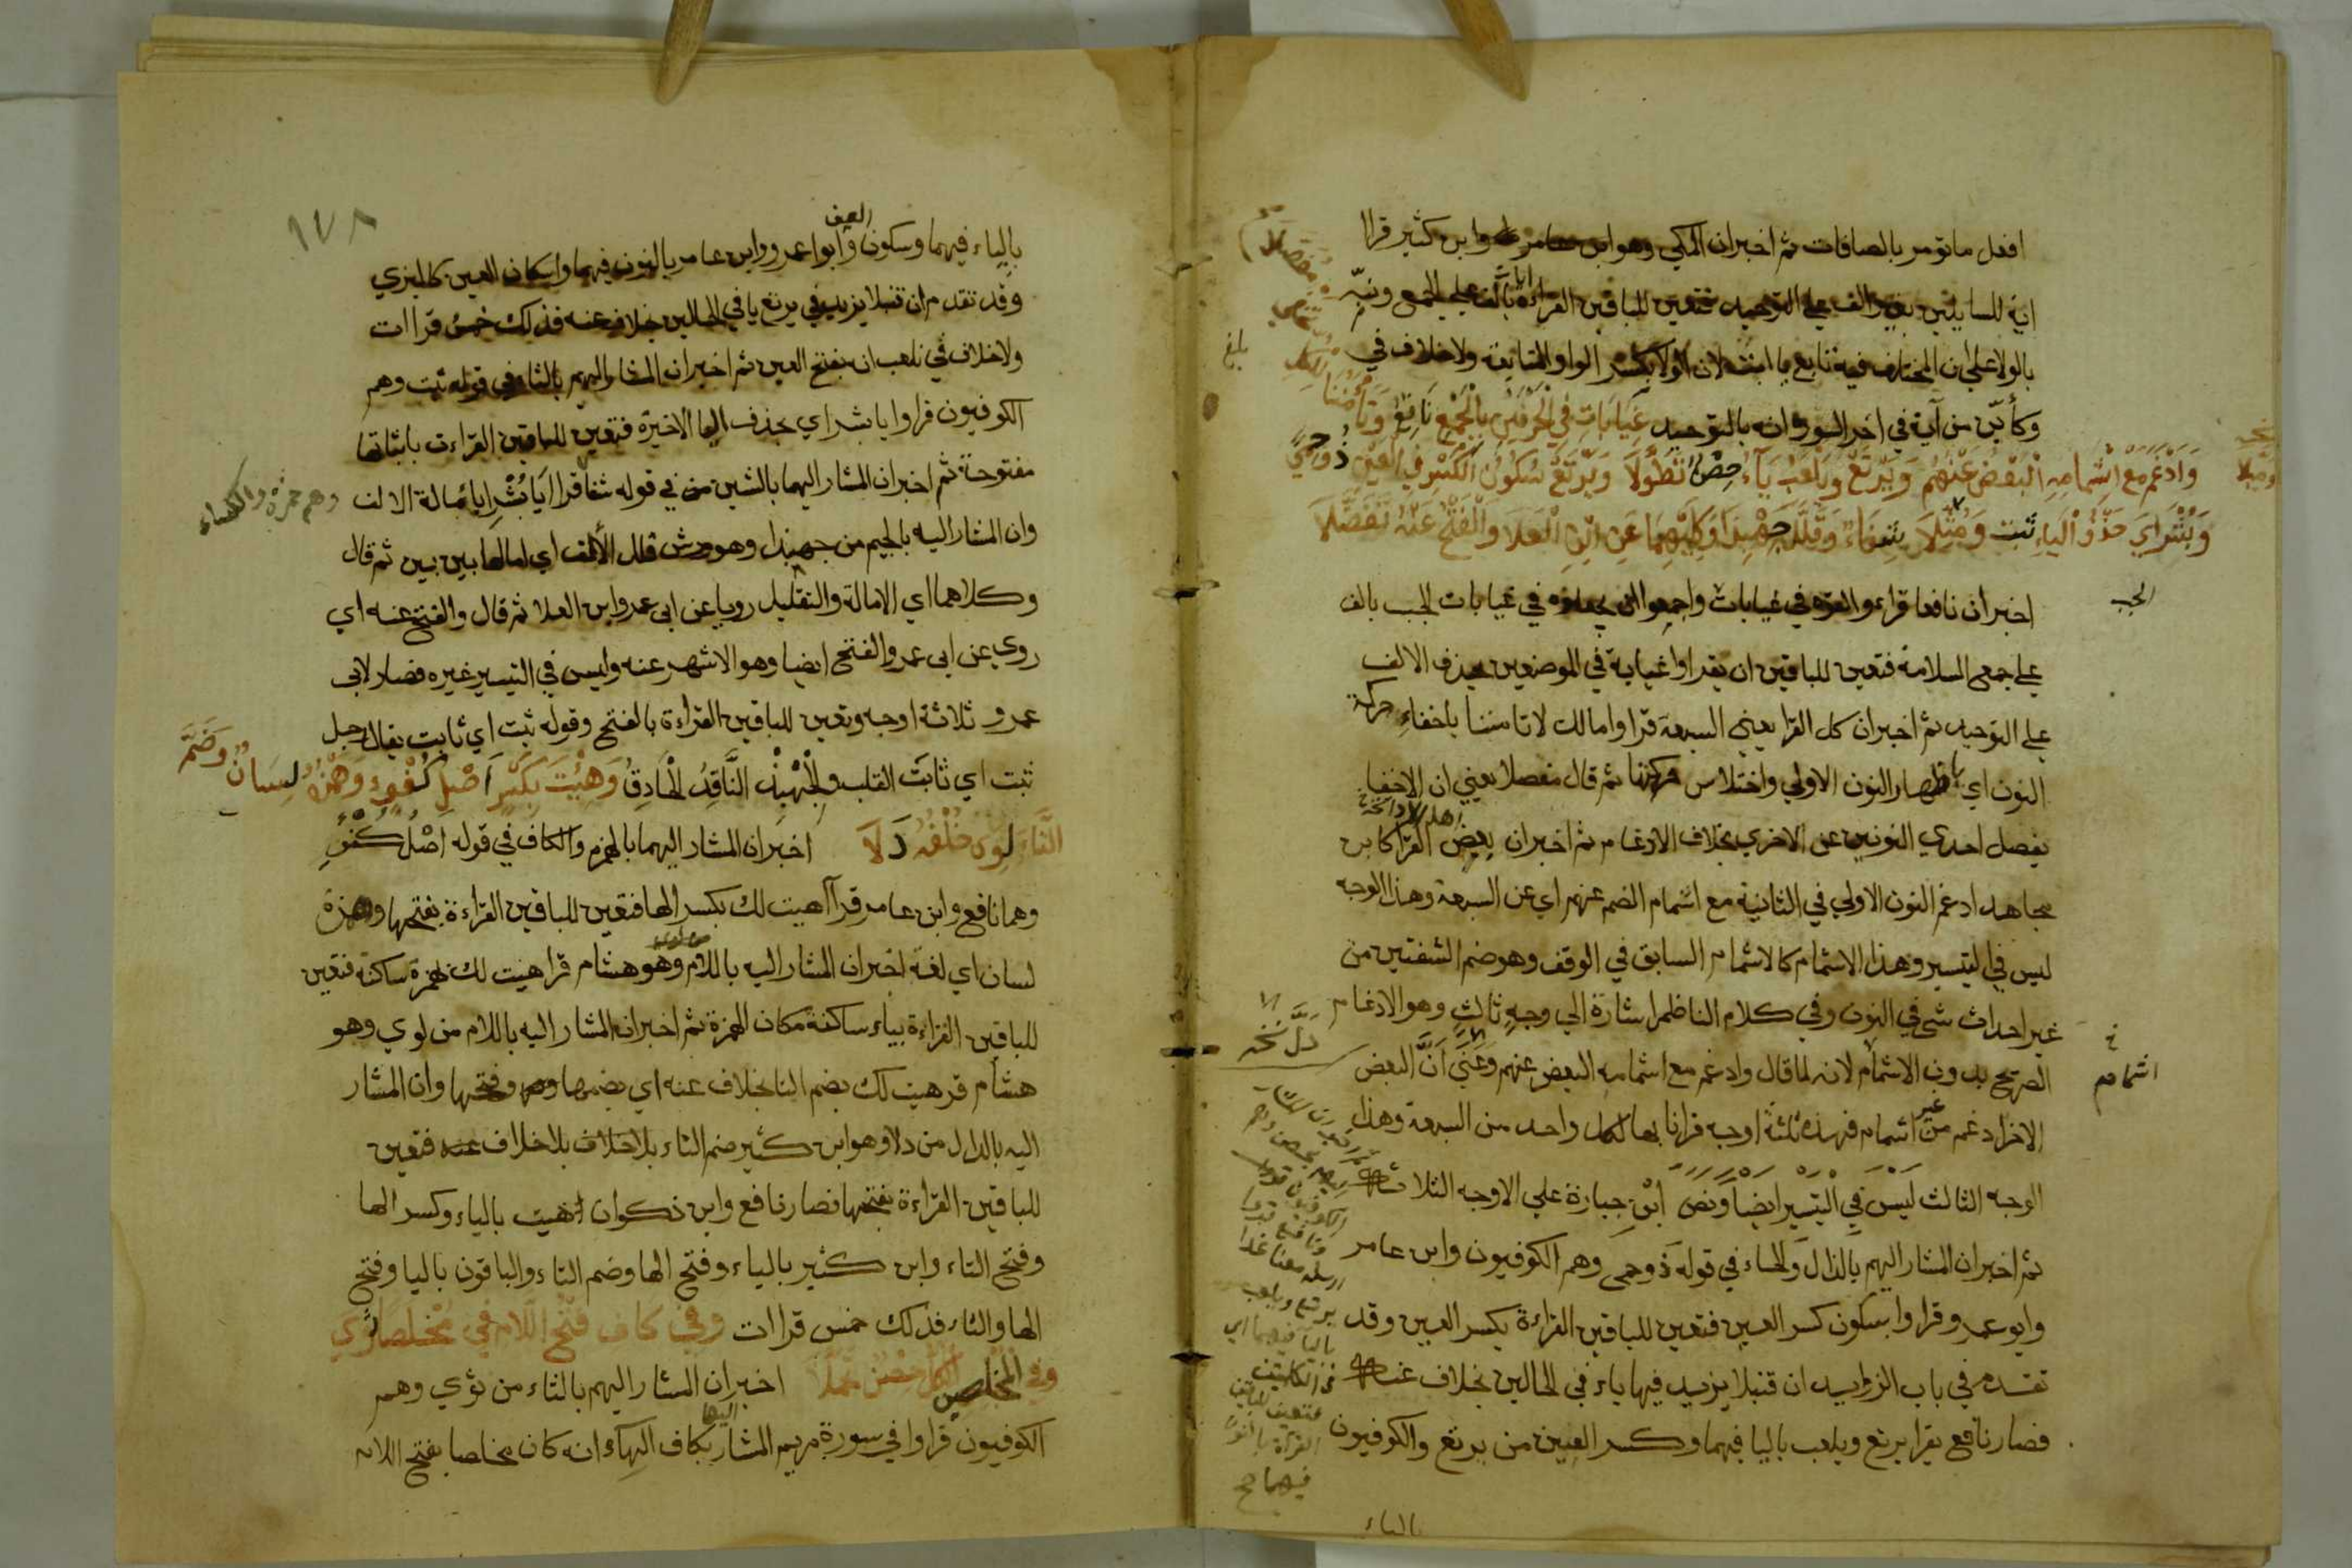 افعل ما تؤمر بالصافات ثم اخبران المكي وهو ابن كثير قرا
اية للسايلين بغير الف على التوحيد فتعين للباقين القراءة بالف على الجمع ونبه
بالولا على ان المختلف فيه تابع يا ابت لان الولا بكسر الواو المتابعة ولا خلاف في
وكأين من آية في اخر السورة انه بالتوحيد غَيَابَاتِ فِي الْحَرْفَيْنِ بِالْجَمْعِ نَافِعٌ وَتَأْمَنُنَا لِلْكُلِّ يُخْفِي مُفَصَّلَا
وَادْغَمَ مَعْ اِشْمَامِهِ الْبَعْضُ عَنْهُمْ وَيَرْتَعْ وَيَلْعَبْ يَآءُ حِصْنٍ تَطَوَّلَا وَيَرْتَعْ سُكُونُ الْكَسْرِ فِي الْعَيْنِ ذُو حِمًى
وَبُشْرَايَ حَذْفُ الْيَاءِ ثَبْت وَمُيِّلَا شِفَاءً وَقَلِّلْ جِهْبِذًا وَكِلَيْهِمَا عَنِ ابْنِ الْعَلَا وَالْفَتْحُ عَنْهُ تَفَضَّلَا
نسخه
وميلا
بلغ
اخبر ان نافعا قرا والقوه في غيابات واجمعوا ان يجعلوه في غيابات الجب بالف
الجب
على جمع السلامة فتعين للباقين ان يقراوا غيابة في الموضعين بحذف الالف
على التوحيد ثم اخبر ان كل القرا يعني السبعة قراوا مالك لا تامننا باخفاء حركة
النون اي باظهار النون الاولي واختلاس حركتها ثم قال مفصلا يعني ان الاخفا
يفصل احدي النونين عن الاخري بخلاف الادغام ثم اخبر ان بعض اهل الادا القرا كابن
مجاهد ادغم النون الاولي في الثانية مع اشمام الضم عنهم اي عن السبعة وهذا الوجه
ليس في التيسير وهذا الاشمام كالاشمام السابق في الوقف وهو ضم الشفتين من
غير احداث شي في النون وفي كلام الناظم اشارة الي وجه ثالث وهو الادغام
دل نسخه
الصريح بدون الاشمام لانه لما قال وادغم مع اشمامه البعض عنهم وعنى ان البعض
اشمامه
الاخر ادغم من غير اشمام فهذه ثلثة اوجه قرانا بها لكل واحد من السبعة وهذا
الوجه الثالث ليس في التيسير ايضا ونص ابن جبارة علي الاوجه الثلاثة
ثم اخبر ان المشار اليهم بالذال والحاء في قوله ذو حمى وهم الكوفيون وابن عامر
وابو عمرو قراوا بسكون كسر العين فتعين للباقين القراءة بكسر العين وقد
تقدم في باب الزوايد ان قنبلا يزيد فيها ياء في الحالين بخلاف عنه
فصار نافع يقرا يرتع ويلعب باليا فيهما وكسر العين من يرتع والكوفيون
الكوفيون
ونافع قراوا
ارسله معنا غدا
يرتع ويلعب
باليا فيهما اي
في الكلمتين
فتعين للباقين
القراة بالنون
فيهما صح
بالياء
١٧٨
بالياء فيهما وسكون العين وابوا عمرو وابن عامر بالنون فيهما واسكان العين كالبزي
وقد تقدم ان قنبلا يزيد في يرتع يا في الحالين بخلاف عنه فذلك خمس قراات
ولا خلاف في نلعب انه بفتح العين ثم اخبر ان المشار اليهم بالثاء في قوله ثبت وهم
الكوفيون قراوا يا بشراي بحذف اليا الاخيرة فتعين للباقين القراءت باثباتها
مفتوحة ثم اخبر ان المشار اليهما بالشين من في قوله شفا قراا يا بشرايا بامالة الالف
وهم حمزة والكساء
وان المشار اليه بالجيم من جهبذا وهو ورش قلل الألف اي امالها بين بين ثم قال
وكلاهما اي الامالة والتقليل رويا عن ابى عمرو ابن العلا ثم قال والفتح عنه اي
روى عن ابى عمرو الفتح ايضا وهو الاشهر عنه وليس في التيسير غيره فصار لابى
عمرو ثلاثة اوجه وتعين للباقين القراءة بالفتح وقوله ثبت اي ثابت يقال رجل
ثبت اي ثابت القلب والجهبذ النَّاقِدُ الْحَاذِقُ وَهِئْتَ بِكَسْرٍ اَصْلُ كُفْوٍ وَهَمْزُهُ لِسَانٌ وَضَمُّ
التَّاءِ لِوَى خُلْفُهُ دَلَا اخبر ان المشار اليهما بالهمز والكاف في قوله اصل كفو
وهما نافع وابن عامر قراآ هيت لك بكسر الها فتعين للباقين القراءة بفتحها وهمزه
لسان اي لغة اخبر ان المشار اليه باللام وهو هشام قرا هئت لك بهمزة ساكنة فتعين
للباقين القراءة بياء ساكنة مكان الهمزة ثم اخبر ان المشار اليه باللام من لوي وهو
هشام قر هيت لك بضم التا بخلاف عنه اي بضمها وفتحها وان المشار
اليه بالدال من دلا وهو ابن كثير ضم التاء بلا خلاف بلا خلاف عنه فتعين
للباقين القراءة بفتحها فصار نافع وابن ذكوان هيت بالياء وكسر الها
وفتح التاء وابن كثير بالياء وفتح الها وضم التاء والباقون باليا وفتح
الها والتاء فذلك خمس قراات وفي كاف فَتْحُ اللَّامِ فِي مُخْلَصًا ثَوَى
وفي الْمُخْلَصِين الْكُلِّ حِصْنٌ تَجَمَّلَا اخبر ان المشار اليهم بالثاء من ثوي وهم
الكوفيون قراوا في سورة مريم المشار اليها بكاف الهآء انه كان مخلصا بفتح اللام